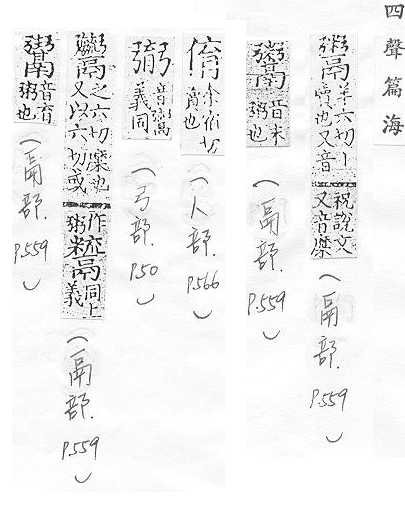 四聲篇海
鬻 羊六切丨賣也又音祝說文又音糜（鬲部.P.559）
音米粥也（鬲部.P.559）
（人部.P.566）
音鬻義同（弓部.P.50）
之六切糜也又以六切或作粥同上義（鬲部.P.559）
音育粥也（鬲部.P.559）